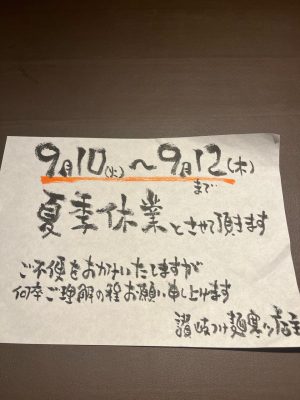 9月10(火)〜9月12(木)
まで
夏季休業とさせて頂きます
ご不便をおかけいたしますが
何卒ご理解の程お願い申し上げます
讃岐つけ麺寒川店主